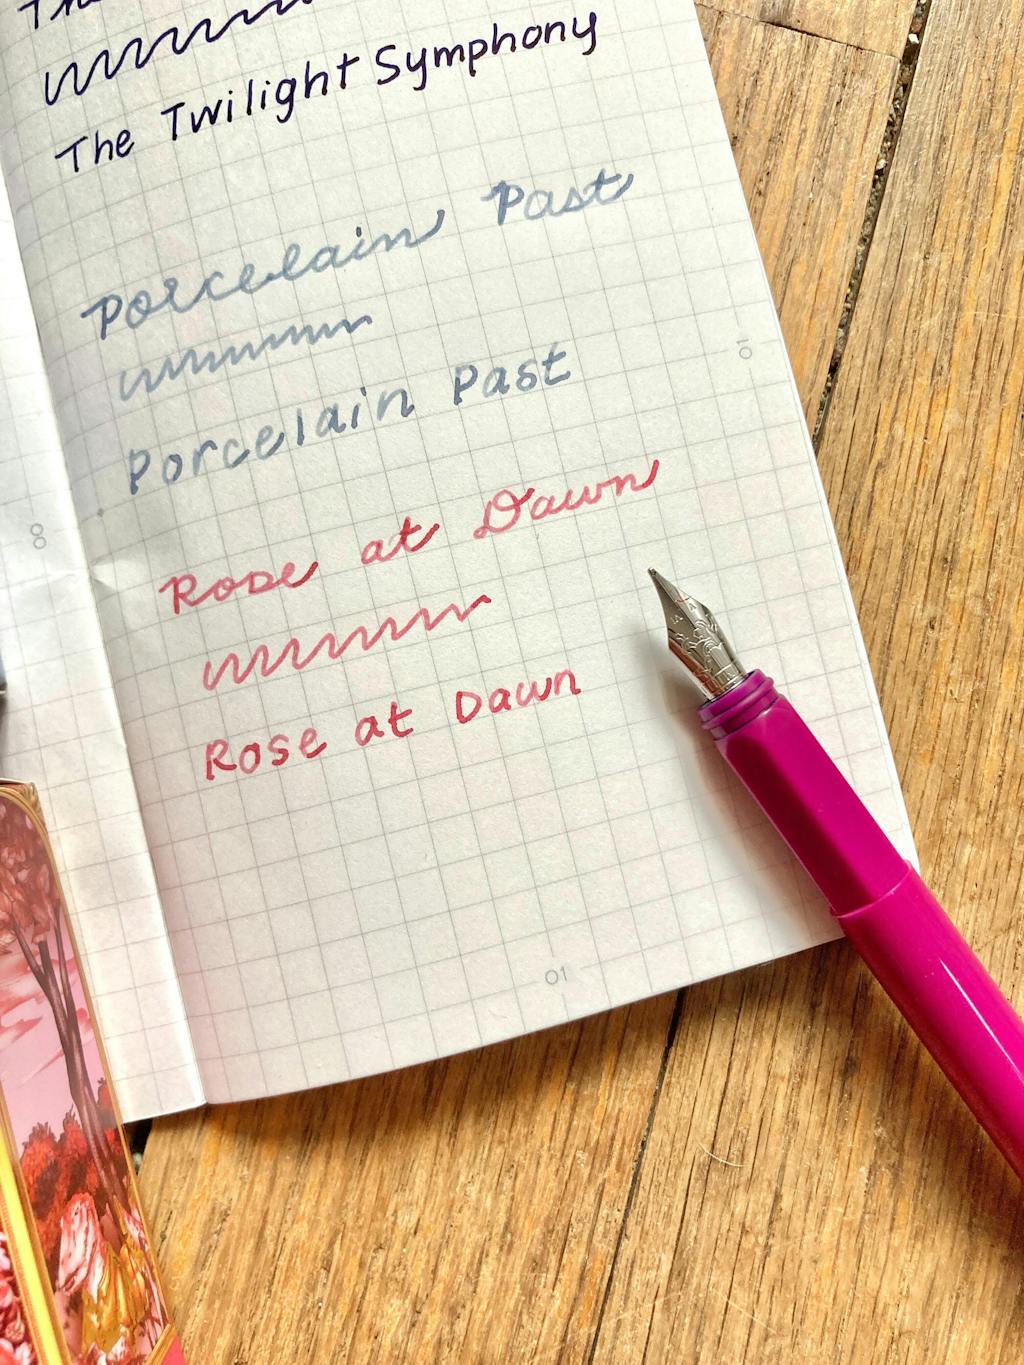 The Twilight Symphony
Porcelain Past
Porcelain Past
Rose at Dawn
Rose at Dawn
10
8
01